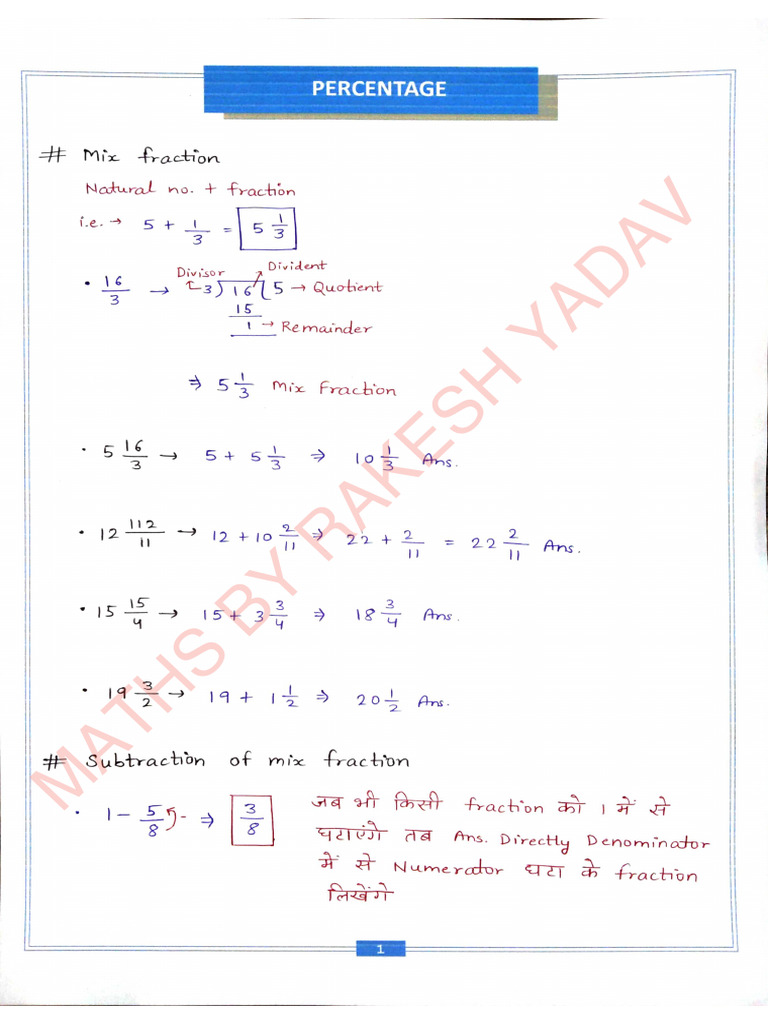 PERCENTAGE
# Mix fraction
Natural no. + fraction
i.e. → 5 + 1/3 = 5 1/3
• 16/3 → Divisor 3 ) 16 ( 5 → Quotient
Divident
15
1 → Remainder
⇒ 5 1/3 Mix Fraction
• 5 16/3 → 5 + 5 1/3 ⇒ 10 1/3 Ans.
• 12 112/11 → 12 + 10 2/11 ⇒ 22 + 2/11 = 22 2/11 Ans.
• 15 15/4 → 15 + 3 3/4 ⇒ 18 3/4 Ans.
• 19 3/2 → 19 + 1 1/2 ⇒ 20 1/2 Ans.
# Subtraction of mix fraction
• 1 - 5/8 ⇒ 3/8 जब भी किसी fraction को 1 में से
घटाएंगे तब Ans. Directly Denominator
में से Numerator घटा के fraction
लिखेंगे
1
MATHS BY RAKESH YADAV